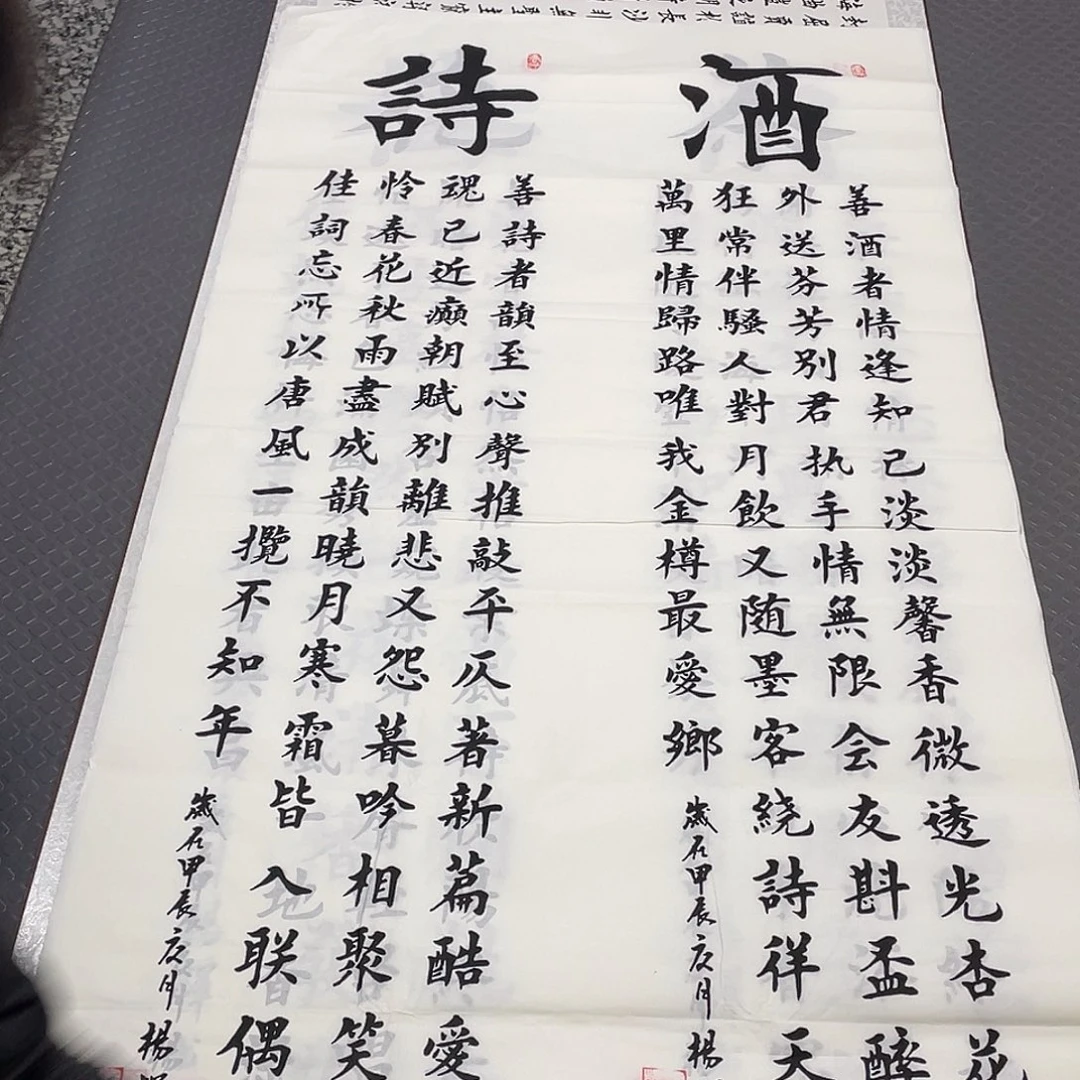 酒
善酒者情逢知己淡淡馨香微透光杏花
外送芬芳別君执手情無限会友斟盃醉
狂常伴騷人對月飲又随墨客繞詩徉天
萬里情歸路唯我金樽最愛鄉
歲在甲辰月楊
詩
善詩者韻至心聲推敲平仄著新篇酷愛
魂已近癲朝賦別離悲又怨暮吟相聚笑
怜春花秋雨盡成韻曉月寒霜皆入联偶
佳詞忘所以唐風一攬不知年
歲在甲辰月楊